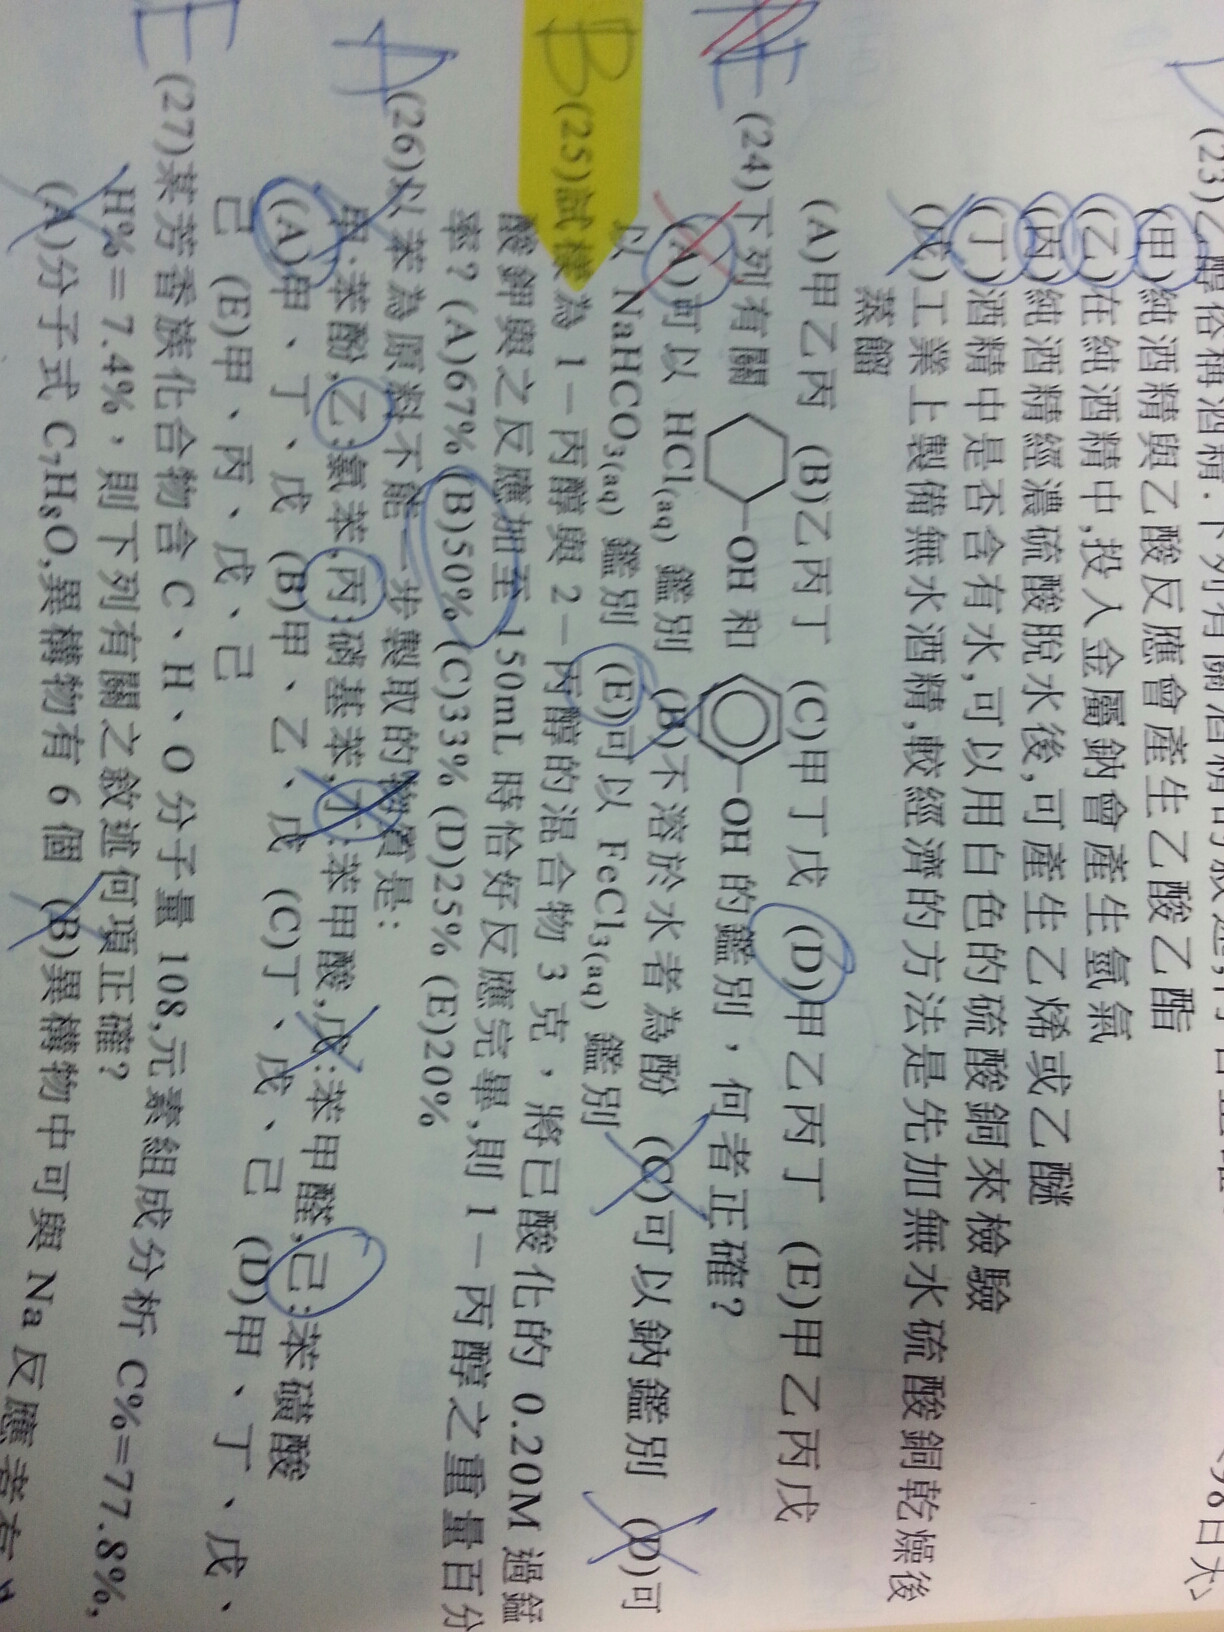 (23)乙醇俗稱酒精.下列有關酒精的敘述,
(甲)純酒精與乙酸反應會產生乙酸乙酯
(乙)在純酒精中,投入金屬鈉會產生氫氣
(丙)純酒精經濃硫酸脫水後,可產生乙烯或乙醚
(丁)酒精中是否含有水,可以用白色的硫酸銅來檢驗
(戊)工業上製備無水酒精,較經濟的方法是先加無水硫酸銅乾燥後
蒸餾
(A)甲乙丙 (B)乙丙丁 (C)甲丁戊 (D)甲乙丙丁 (E)甲乙丙戊
E (24)下列有關 -OH 和 -OH 的鑑別,何者正確?
(A)可以 HCl(aq) 鑑別 (B)不溶於水者為酚 (C)可以鈉鑑別 (D)可
以 NaHCO₃(aq) 鑑別 (E)可以 FeCl₃(aq) 鑑別
B (25)試樣為 1-丙醇與 2-丙醇的混合物 3 克,將已酸化的 0.20M 過錳
酸鉀與之反應加至 150mL 時恰好反應完畢,則 1-丙醇之重量百分
率? (A)67% (B)50% (C)33% (D)25% (E)20%
A (26)以苯為原料不能一步製取的物質是:
甲:苯酚,乙:氯苯,丙:硝基苯,丁:苯甲酸,戊:苯甲醛,己:苯磺酸
(A)甲、丁、戊 (B)甲、乙、戊 (C)丁、戊、己 (D)甲、丁、戊、
己 (E)甲、丙、戊、己
E (27)某芳香族化合物含 C、H、O 分子量 108,元素組成分析 C%=77.8%,
H%=7.4%,則下列有關之敘述何項正確?
(A)分子式 C₇H₈O,異構物有 6 個 (B)異構物中可與 Na 反應者有